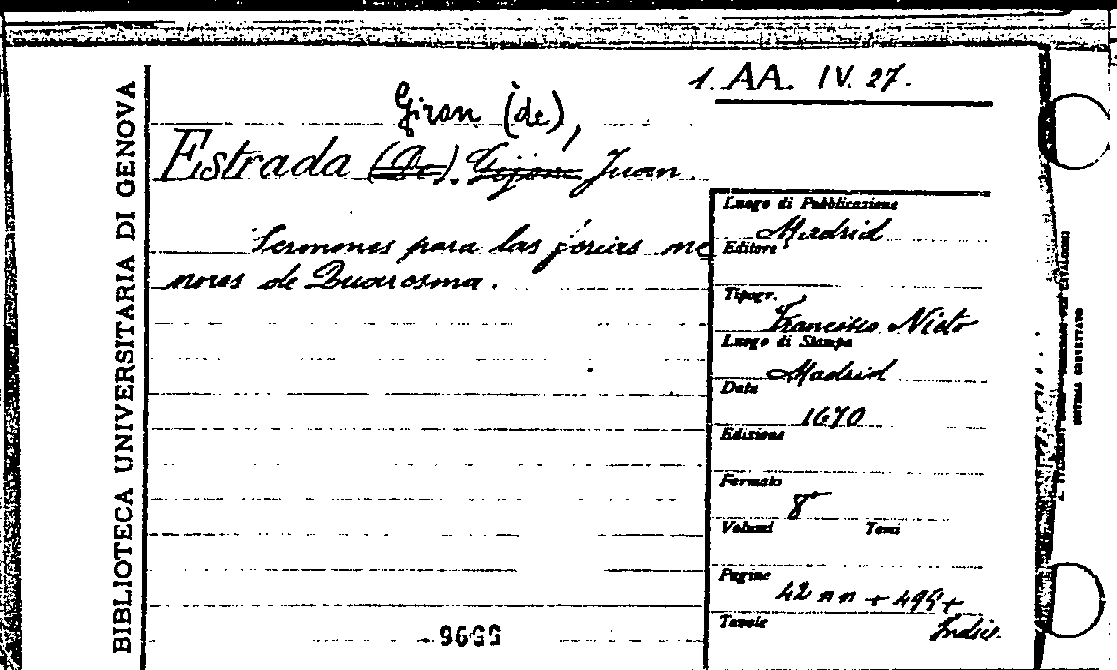 BIBLIOTECA UNIVERSITARIA DI GENOVA
1. AA. IV. 27.
Giron (de),
Estrada (De). Gijone Juan
Sermones para las ferias me
nores de Quaresma.
Luogo di Pubblicazione
Madrid
Editore
Tipogr.
Francisco Nieto
Luogo di Stampa
Madrid
Data
1670
Edizione
Formato
8°
Volumi Tomi
Pagine
42 nn + 495 +
Tavole
Indic.